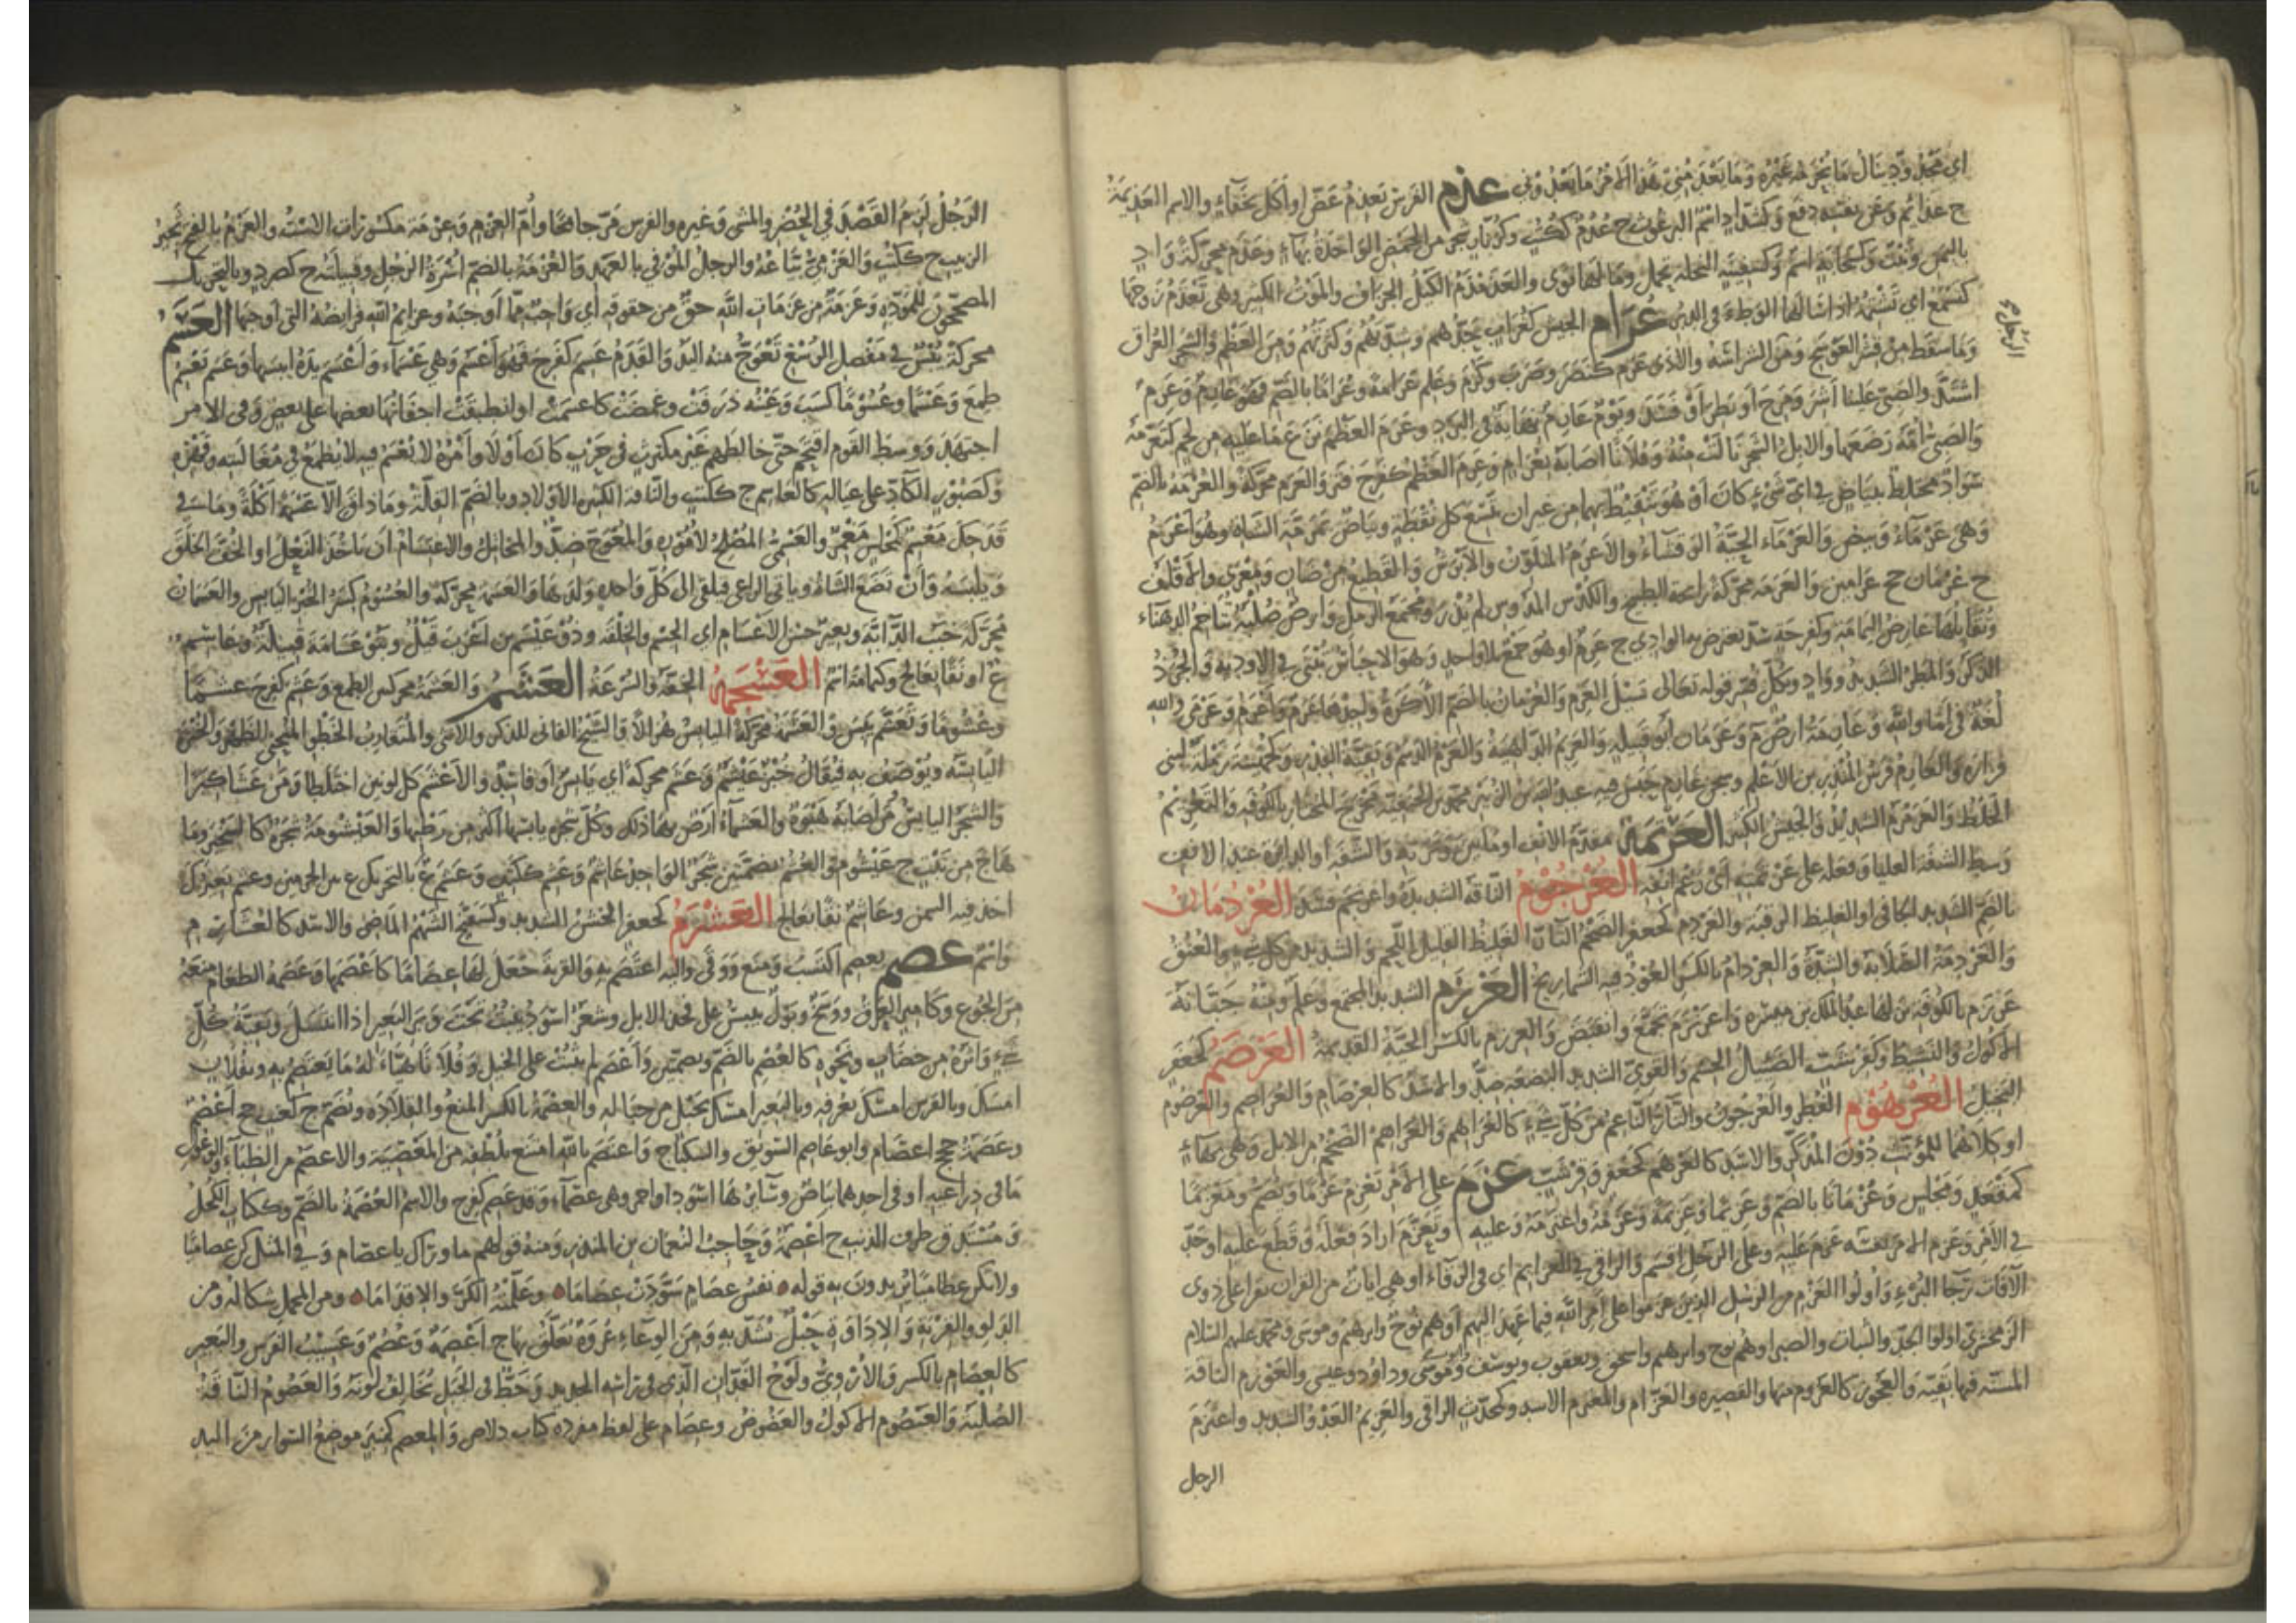 اي مجدود ينال ما يحرمه غيره وما يعدمني هذا الامر ما يعدوني عذم الفرس يعذم عض او اكل بجفاء والاسم العذيمة
ج عذائم وعن نفسه دفع وكشداد اسم البرغوث ج عذم ككتب وكزنار شجر من الحمض الواحدة بهاء وعذم محركة واد
باليمن ونبت وكسحابة اسم وكسفينة النخلة تحمل وما لها نوى والعذمذم الكيل الجزاف والموت الكثير وهي تعذم زوجها
كتسمع اي تشتمه اذا سالها الوطء في الدبر عرام الجيش كغراب حدهم وشدتهم وكثرتهم ومن العظم والشجر العراق
وما سقط من قشر العوسج ومن الشراسة والاذى عرم كنصر وضرب وكرم وعلم عرامة وعراما بالضم فهو عارم وعرم
اشتد والصبي علينا اشر ومرح او بطر او فسد ويوم عارم نهاية في البرد وعرم العظم نزع ما عليه من لحم كتعرمه
والصبي امه رضعها والابل الشجر نالت منه وفلانا اصابه بعرام وعرم العظم كفرح قتر والعرم محركة والعرمة بالضم
سواد مختلط ببياض في اي شيء كان او هو تنقيط بهما من غير ان تتسع كل نقطة وبياض بمرمة الشاة وهو اعرم
وهي عرماء وبيض والعرماء الحية الرقشاء والاعرم المتلون والابرش والقطيع من ضان ومعزى والاقلف
ج عرمان جج عرامين والعرمة محركة رائحة الطبيخ والكدس المدوس لم يذر ومجتمع الرمل وارض صلبة تتاخم الدهناء
وتقابلها عارض اليمامة وكفرحة سد يعترض به الوادي ج عرم او هو جمع بلا واحد وهو الاحباس تبنى في الاودية والجرذ
الذكر والمطر الشديد وواد وبكل فسر قوله تعالى سيل العرم والعرمان بالضم الاكرة واحدها عرم واعرم وعرمى والله
لغة في اما والله وعارمة ارض م وعرمان ابو قبيلة والعريم الداهية والعرم الدسم وبقية القدر وكجهينة رملة لبني
فزارة والعارم فرس المنذر بن الاعلم وسجن عارم حبس فيه عبد الله بن الزبير محمد بن الحنفية فخرج المختار بالكوفة والتعريم
الخلط والعرمرم الشديد والجيش الكثير العرتمة مقدم الانف او ما بين وترته والشفة او الدائرة عند الانف
وسط الشفة العليا وفعله على عرتمته اي رغم انفه العرجوم الناقة الشديدة واعرنجم فسد العردمان
بالضم الشديد الجافي او الغليظ الرقبة والعردم كجعفر الضخم التار الغليظ القليل اللحم والشديد من كل شيء والعنق
والعردمة الصلابة والشدة والعردام بالكسر العود فيه الشماريخ العرزم الشديد المجتمع وعلم ومنه جبانة
عرزم بالكوفة نزلها عبد الملك بن ميسرة واعرنزم تجمع وانقبض والعرزم بالكسر الحية القديمة العرصم كجعفر
الاكول والنشيط وكقرشب الضئيل الجسم والقوي الشديد البضعة ضد والاسد كالعرصام والعراصم والعرصوم
البخيل العرهوم الفطر والعرجون والتار الناعم من كل شيء كالعراهم والعراهم الضخم من الابل وهي بهاء
او كلاهما للمؤنث دون المذكر والاسد كالعرهم كجعفر وقرشب عزم على الامر يعزم عزما ويضم ومعزما
كمقعد ومجلس وعزمانا بالضم وعزيما وعزيمة وعزمه واعتزمه وعليه وتعزم اراد فعله وقطع عليه او جد
في الامر وعزم الامر نفسه عزم عليه وعلى الرجل اقسم والراقي قرا العزائم اي في الرقاء او هي ايات من القران تقرا على ذوي
الآفات رجا البرء واولوا العزم من الرسل الذين عزموا على امر الله فيما عهد اليهم او هم نوح وابرهيم وموسى ومحمد عليهم السلام
الزمخشري اولوا الجد والثبات والصبر او هم نوح وابرهيم واسحق ويعقوب ويوسف وموسى وداؤد وعيسى والعوزم الناقة
المسنة فيها بقية والعجوز كالعزوم فيهما والقصيرة والعزام والمعتزم الاسد وكمحدث الراقي والعزيم العدو الشديد واعتزم
الرجل
الرجل لزم القصد في الحضر والمشي وغيره والفرس مر جامحا وام العزم وعزمة مكسورتان الاست والعزم بالفتح ثجير
الزبيب ج ككتب والعزمي بياعه والرجل الموفي بالعهد والعزمة بالضم اسرة الرجل وقبيلته ج كصرد وبالتحريك
المصححون للمودة وعزمة من عزمات الله حق من حقوقه اي واجب مما اوجبه وعزائم الله فرائضه التي اوجبها العسم
محركة يبس في مفصل الرسغ تعوج منه اليد والقدم عسم كفرح فهو اعسم وهي عسماء واعسم يده ايبسها وعسم يعسم
طمع وعسما وعسوما كسب وعينه ذرفت وغمضت كاعسمت او انطبقت اجفانها بعضها على بعض وفي الامر
اجتهد ووسط القوم اقتحم حتى خالطهم غير مكترث في حرب كان او لا وامره لا يعسم فيه لا يطمع في مغالبته وقهره
وكصبور الكاد على عياله كالعاسم ج ككتب والناقة الكثيرة الاولاد وبالضم القلة وما ذاق الا عسمة اكلة وما في
قدحك معسم كمجلس مغمز والعسمي المصلح لاموره والمعوج ضد والمخاتل والاعتسام ان ياخذ النعل او الخف الخلق
ويلبسه وان تضع الشاة وياتي الراعي فيلقي الى كل واحد ولدها والعسمة محركة والعسوم كسر الخبز اليابس والعسمان
محركة خبب الدابة وبعير حسن الاعسام اي الجسم والخلقة وذو عيسم بن اعرب قيل وبنو عسامة قبيلة وعاسم
ع او نقا بعالج وكثمامة اسم العسجمة الخفة والسرعة العشم والعشمة محركتين الطمع وعشم كفرح عشما
وعشوما وتعشم يبس والعشمة محركة اليابس هزالا والشيخ الفاني للذكر والانثى والمتقارب الخطو المنحني الظهر والخبزة
اليابسة ويوصف به فيقال خبز عيشم وعشم محركة اي يابس او فاسد والاعشم كل لونين اختلطا ومن عشا كبرا
والشجر اليابس من اصابة هبوة والعشماء ارض بها ذلك وكل شجر يابسها اكثر من رطبها والعيشومة شجرة كالسخبر وما
هاج من نبت ج عيشوم والعشم بضمتين شجر الواحد عاشم وعشم ككتف وعشم ع بالتحريك ع بين الحرمين وعشم بعيرك
اخذ فيه السمن وعاشم نقا بعالج العشرم كجعفر الخشن الشديد وكشفلح الشهم الماضي والاسد كالعشارم
واسم عصم يعصم اكتسب ومنع ووقى واليه اعتصم به والقربة جعل لها عصاما كاعصمها وعصمه الطعام منعه
من الجوع وكامير العرق ووسخ وبول ييبس على فخذ الابل وشعر اسود ينبت تحت وبر البعير اذا انتسل وبقية كل
شيء واثره من خضاب ونحوه كالعصم بالضم وبضمتين واعصم لم يثبت على الخيل وفلانا هياء له ما يعتصم به وبفلان
امسك وبالفرس امسك بعرفه وبالبعير امسك بحبل من حباله والعصمة بالكسر المنع والقلادة وتضم ج كعنب جج اعصم
وعصمة ججج اعصام وابو عاصم السويق والسكباج واعتصم بالله امتنع بلطفه من المعصية والاعصم من الظباء والوعول
ما في ذراعيه او في احدهما بياض وسائرها اسود او احمر وهي عصماء وقد عصم كفرح والاسم العصمة بالضم وككتاب الكحل
ومستدق طرف الذنب ج اعصمة وحاجب النعمان بن المنذر ومنه قولهم ما وراك يا عصام وفي المثل كن عصاميا
ولا تكن عظاميا يريدون به قوله نفس عصام سودت عصاما وعلمته الكر والاقداما ومن المحمل شكاله ومن
الدلو والقربة والاداوة حبل تشد به ومن الوعاء عروة تعلق بها ج اعصمة وعصم وعسيب الفرس والبعير
كالعصام بالكسر والاروي ولوح الفدان الذي في راسه الحديدة وخط في الجبل تخالف لونه والعصوم الناقة
الصلبة والعيصوم الاكول والعضوض وعصام على لفظ مفرده كباب دلاص والمعصم كمنبر موضع السوار من اليد